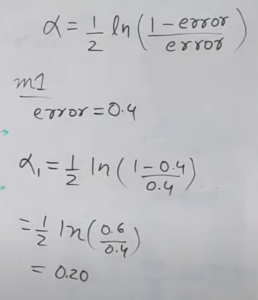 α = 1/2 ln(1-error/error)
m1
error = 0.4
α₁ = 1/2 ln(1-0.4/0.4)
= 1/2 ln(0.6/0.4)
= 0.20